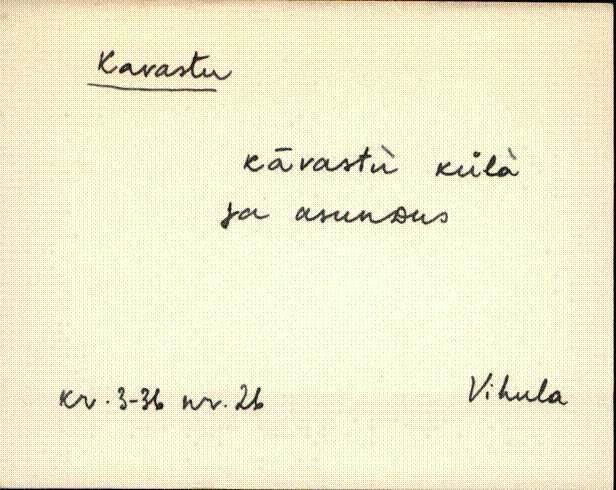 Kavastu
kāvastù külà
ja asunDus
kr. 3-36 nr. 26
Vihula